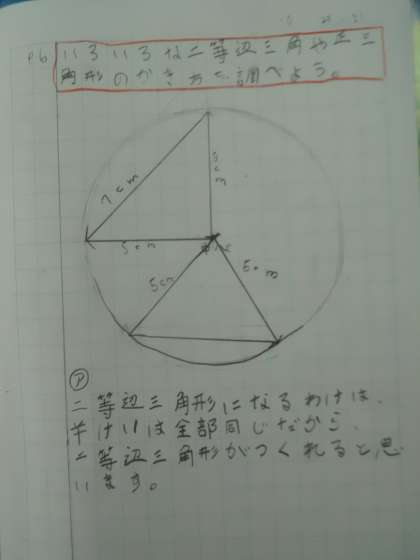 P6 いろいろな二等辺三角や正三
角形のかき方を調べよう。
7cm
5cm
5cm
5cm
5cm
Ⓟ
二等辺三角形になるわけは、
半けいは全部同じだから、
二等辺三角形がつくれると思
います。